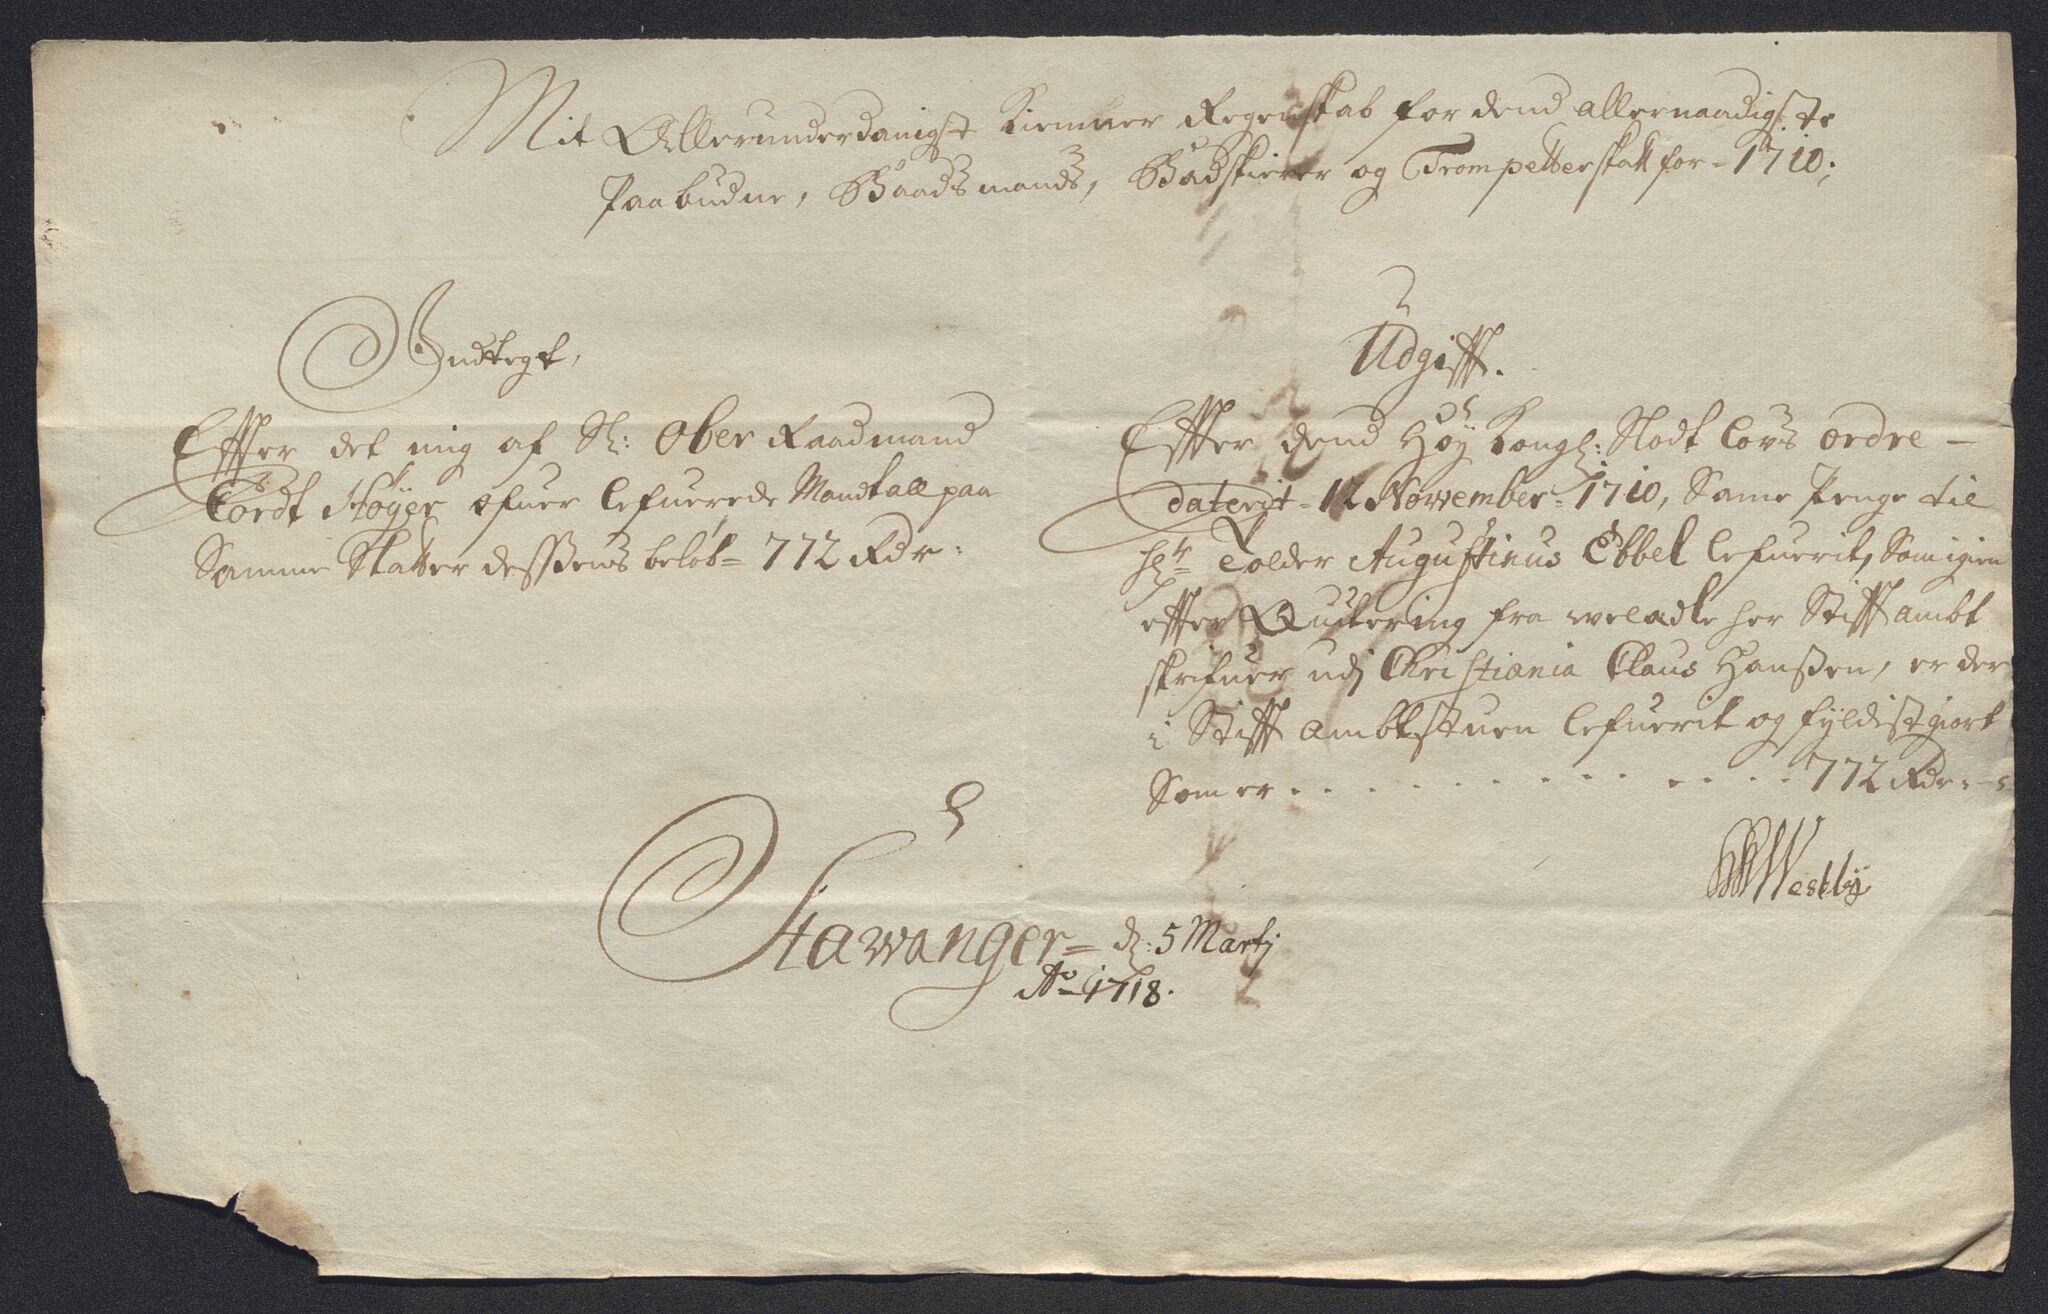 Mit Allerunderdanigst Kiemner Regenskab for dend allernaadigste
Paabudne, Baadsmands, Badskierer og Trompetterskatt for = 1710;
Indtegt,
Effter det mig af Sl: Ober Raadmand
Cordt Høyer ofuer lefuerede Mandtall paa
Samme Skatter dessens beløb = 772 Rdr:
Udgifft.
Effter dend Høy Kongl: Slodt Lovs ordre –
daterit = 12 November = 1710, Same Penge til
Sr Tolder Augustinus Ebbel lefuerit, Som igien
effter Quitering fra welædle her Stifft ambt
skrifuer udj Christiania Claus Hanssen, er der
i Stifft Ambtstuen lefuerit og fyldist giort
Som er . . . . . . . . . . . . 772 Rdr. -
Westby
Stawanger = d: 5 Martj
Ao = 1718.